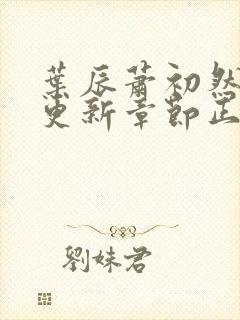 葉辰蕭初然
更新章節正
劉妹君